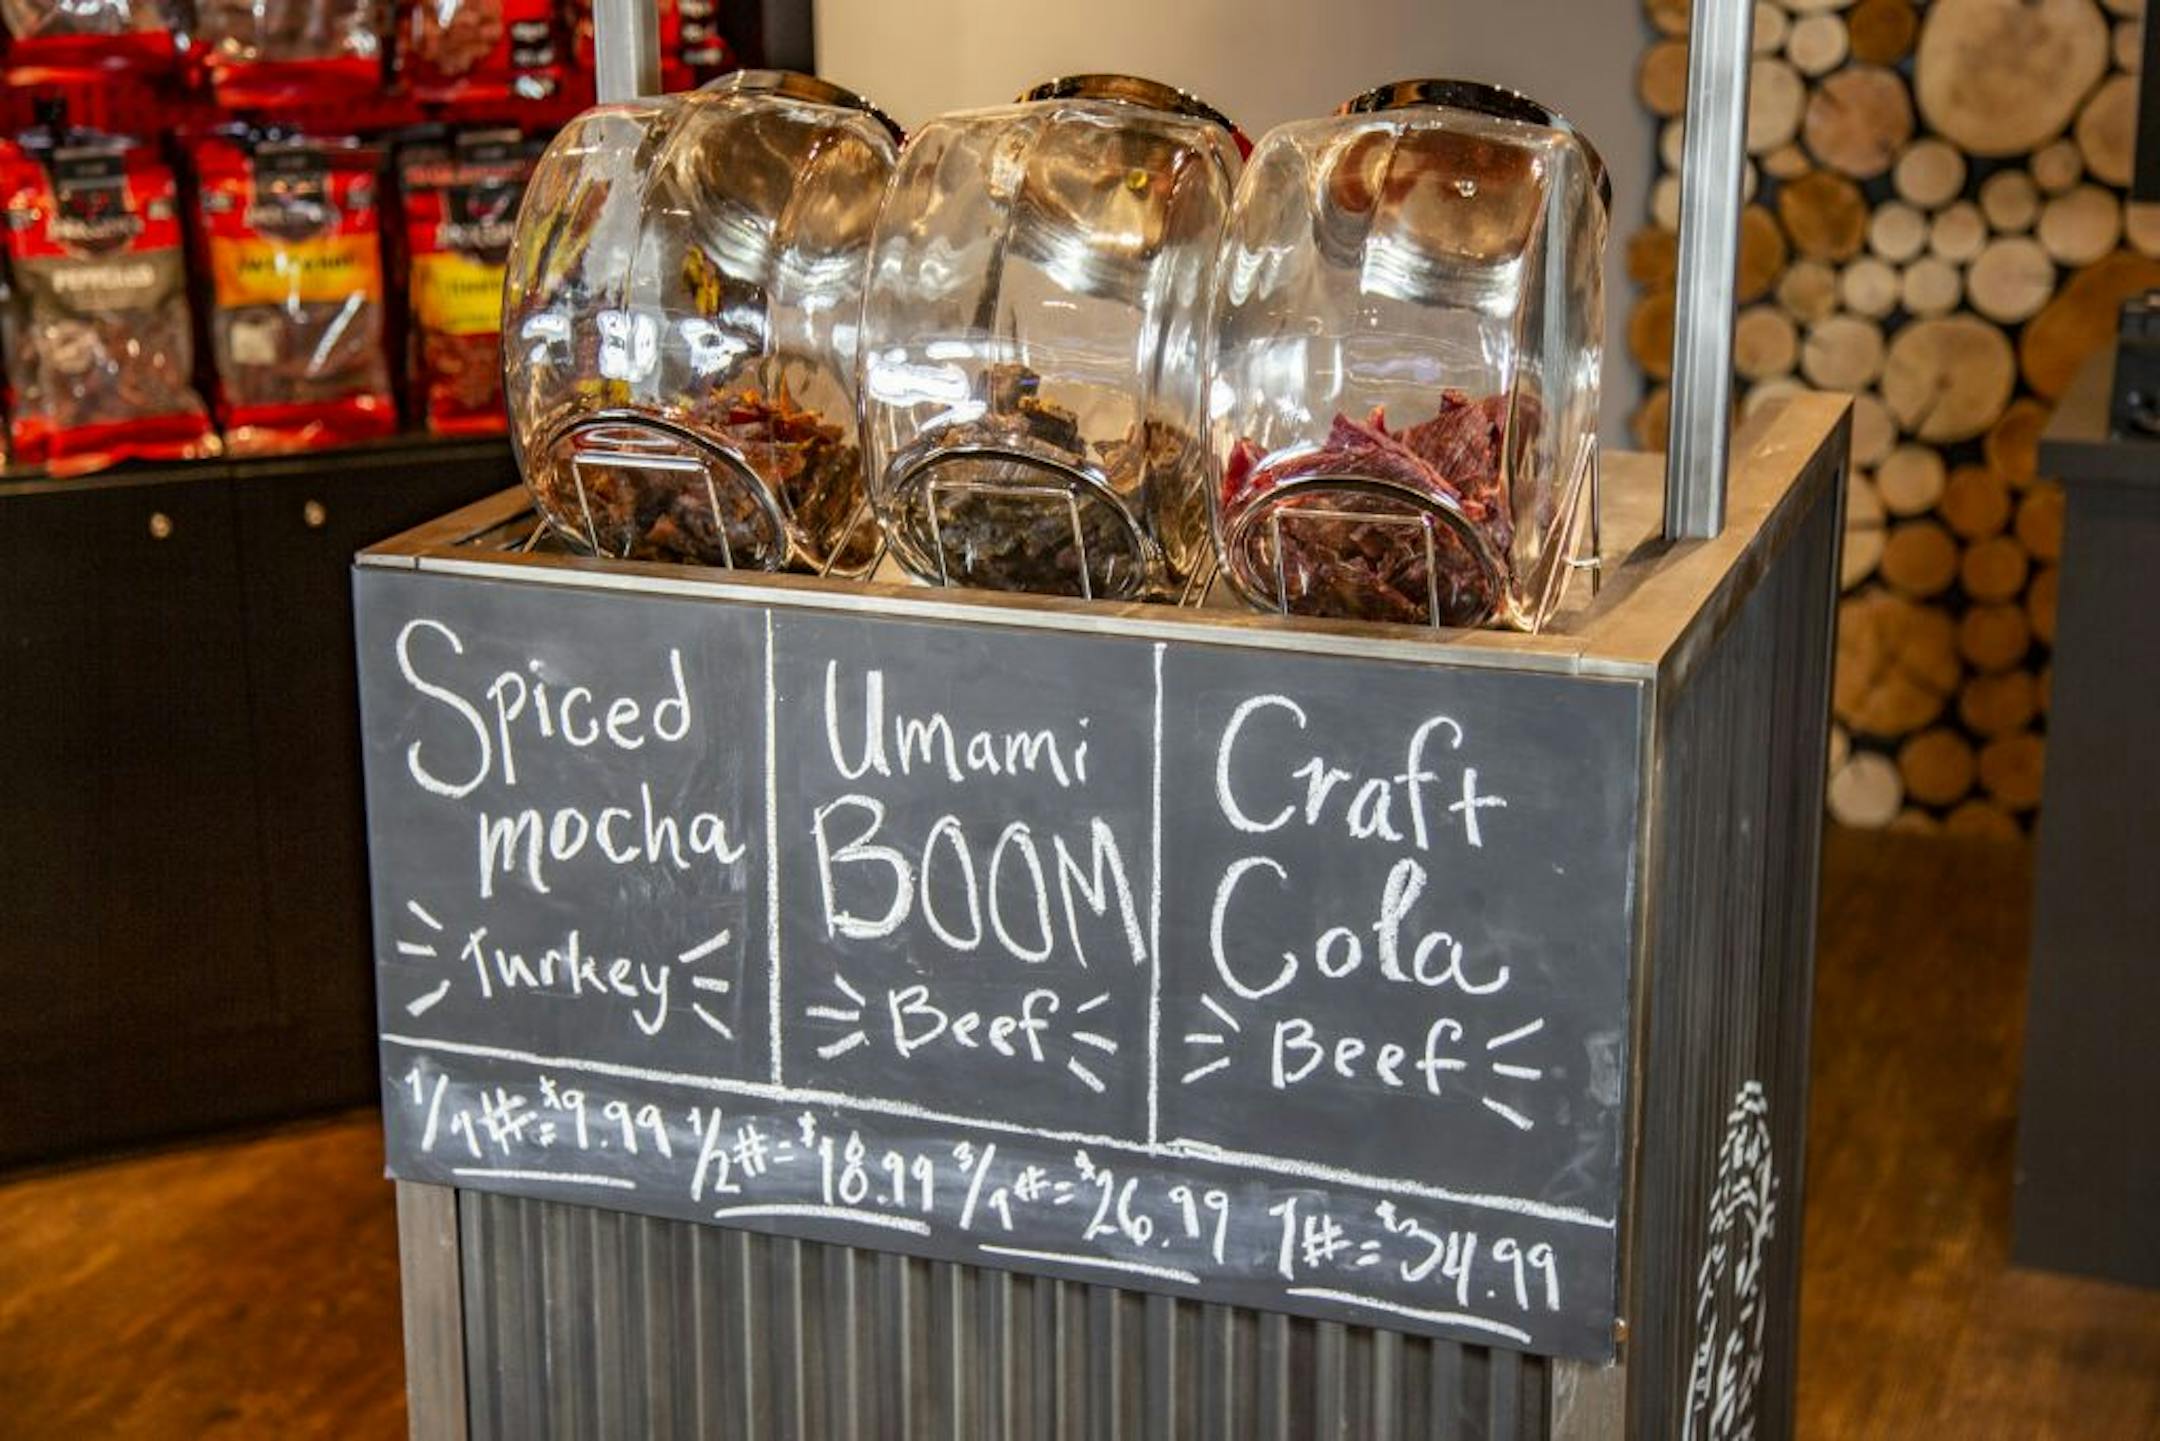 Spiced
mocha
Turkey
Umami
BOOM
Beef
Craft
Cola
Beef
1/4# = $9.99 1/2# = $18.99 3/4# = $26.99 1# = $34.99